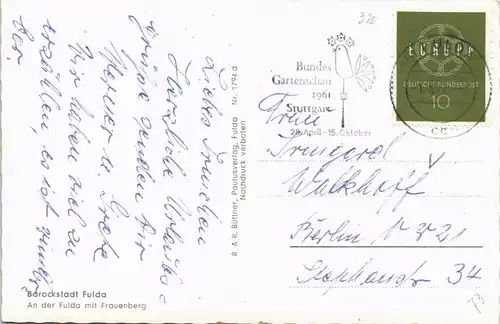 Liebes Trudchen
Herzliche Urlaubs-
grüsse senden Dir
Werner u. Grete
Wir haben viel zu
erzählen, es ist immer
320
Bundes
Gartenschau
1961
Stuttgart
28. April - 15. Oktober
EUROPA
DEUTSCHE BUNDESPOST
10
Frau
Irmgard
Walkhoff
Berlin N 21
Stephanstr 34
R & R. Büttner, Paulusverlag, Fulda Nr. 1794 d
Nachdruck verboten
Barockstadt Fulda
An der Fulda mit Frauenberg